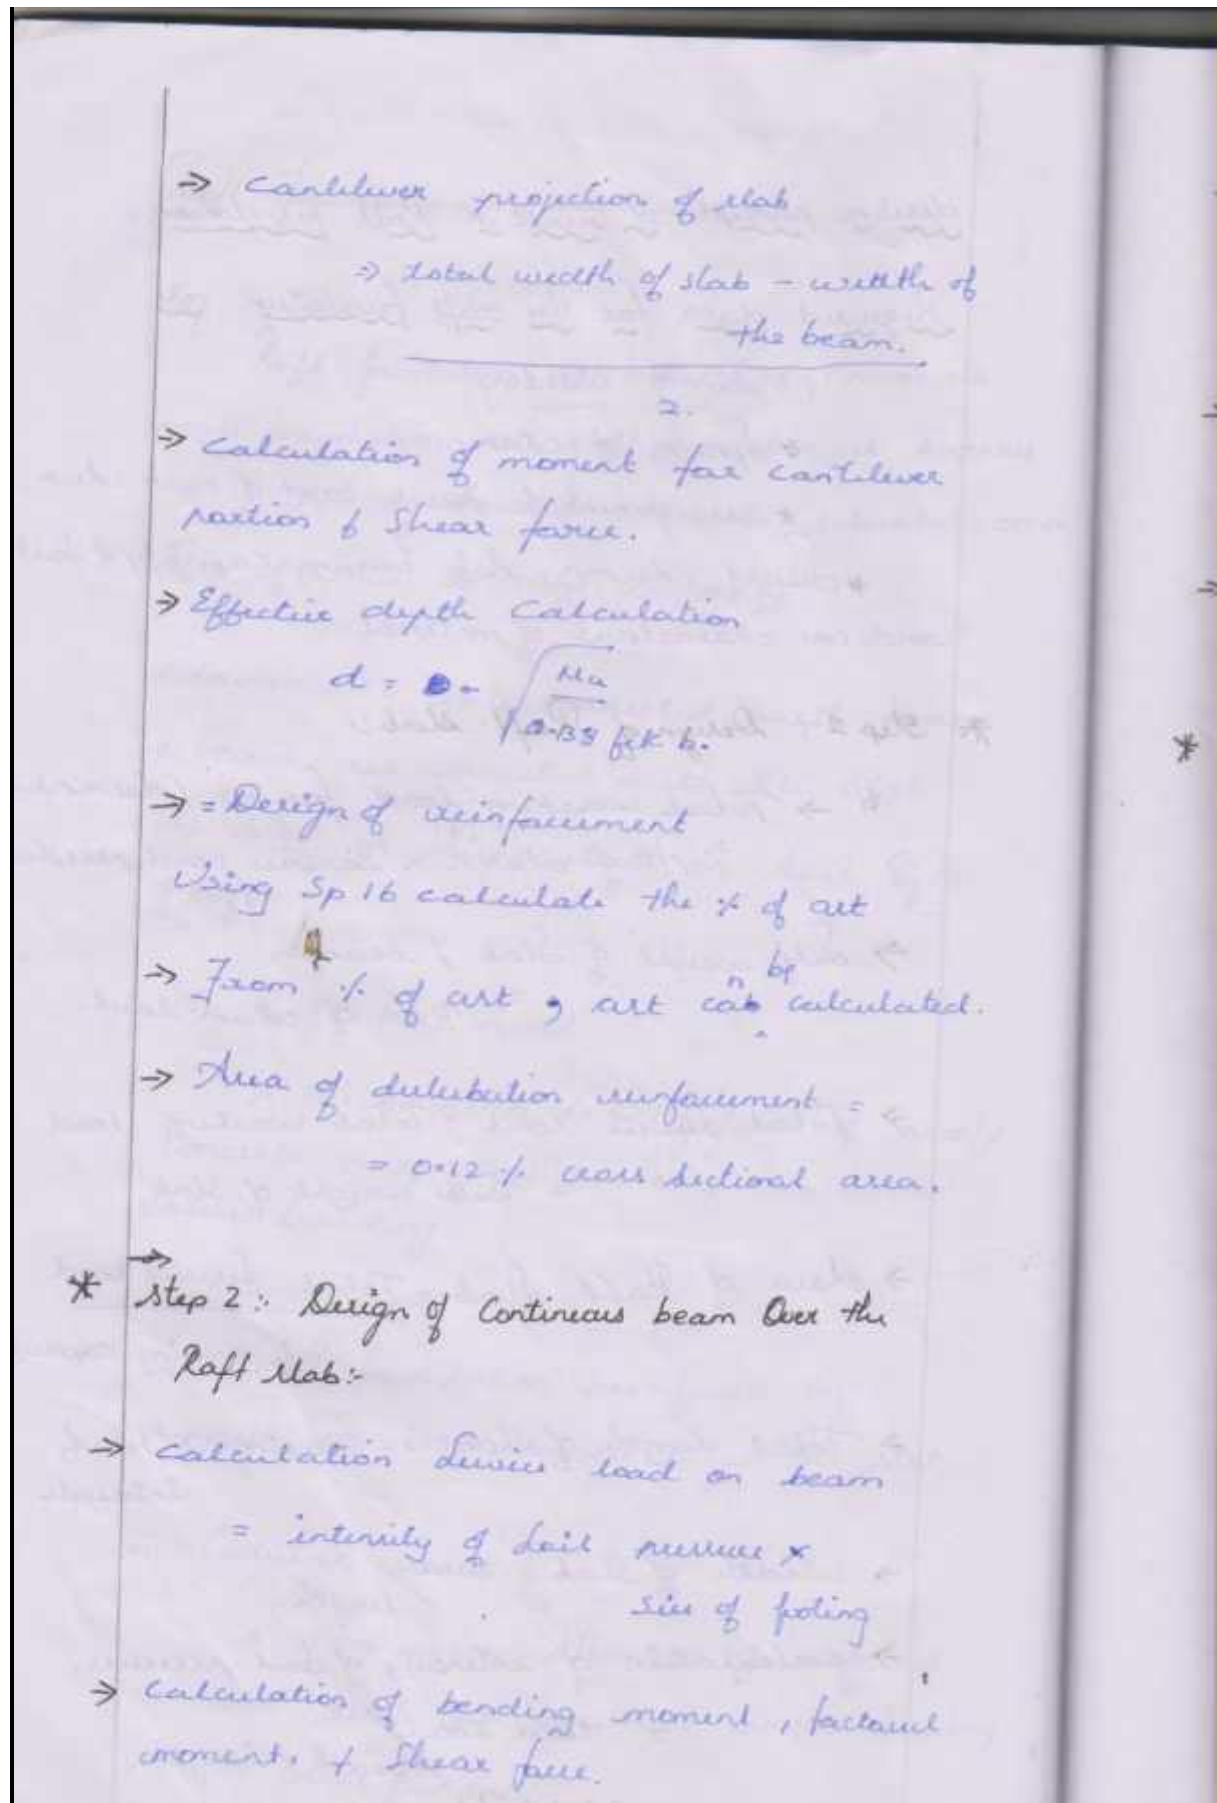 → Cantilever projection of slab
⇒ total width of slab - width of
the beam.
2.
→ Calculation of moment for Cantilever
portion & Shear force.
→ Effective depth Calculation
d = √ Mu
0.138 fck b.
→ = Design of reinforcement
Using Sp 16 calculate the % of ast
→ From % of ast, ast can be calculated.
→ Area of distribution reinforcement =
= 0.12 % cross sectional area.
→
* Step 2 :- Design of Continous beam Over the
Raft slab:-
→ Calculation Service load on beam
= intensity of Soil pressure ×
size of footing
→ Calculation of bending moment, factored
moment. & Shear force.